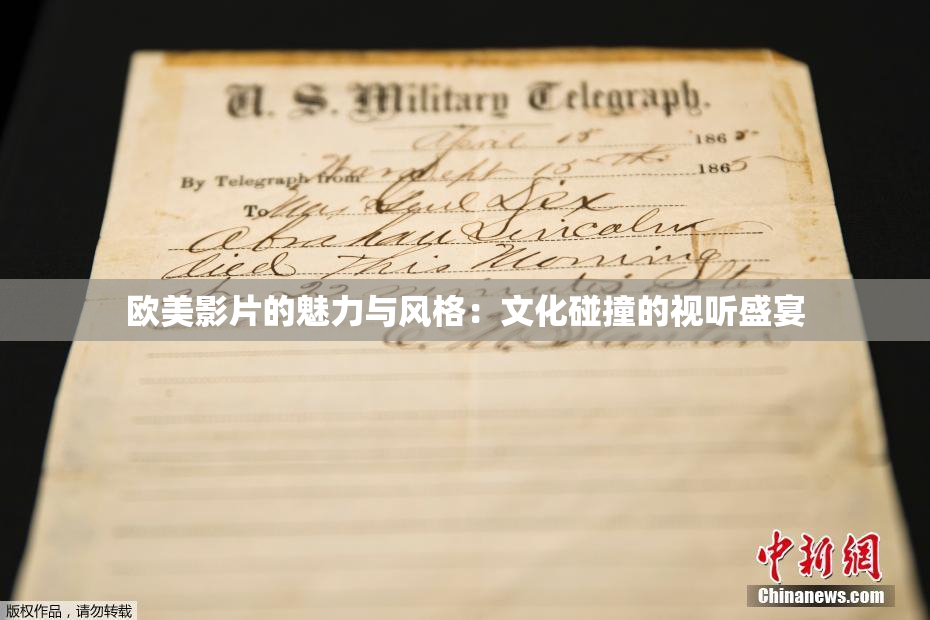 U. S. Military Telegraph.
April 15 1865
By Telegraph from War Dept 15th 1865
To Maj Genl Dix
Abraham Lincoln
died This Morning
at 22 minutes after
欧美影片的魅力与风格：文化碰撞的视听盛宴
E. M. Stanton
中新网
Chinanews.com
版权作品，请勿转载